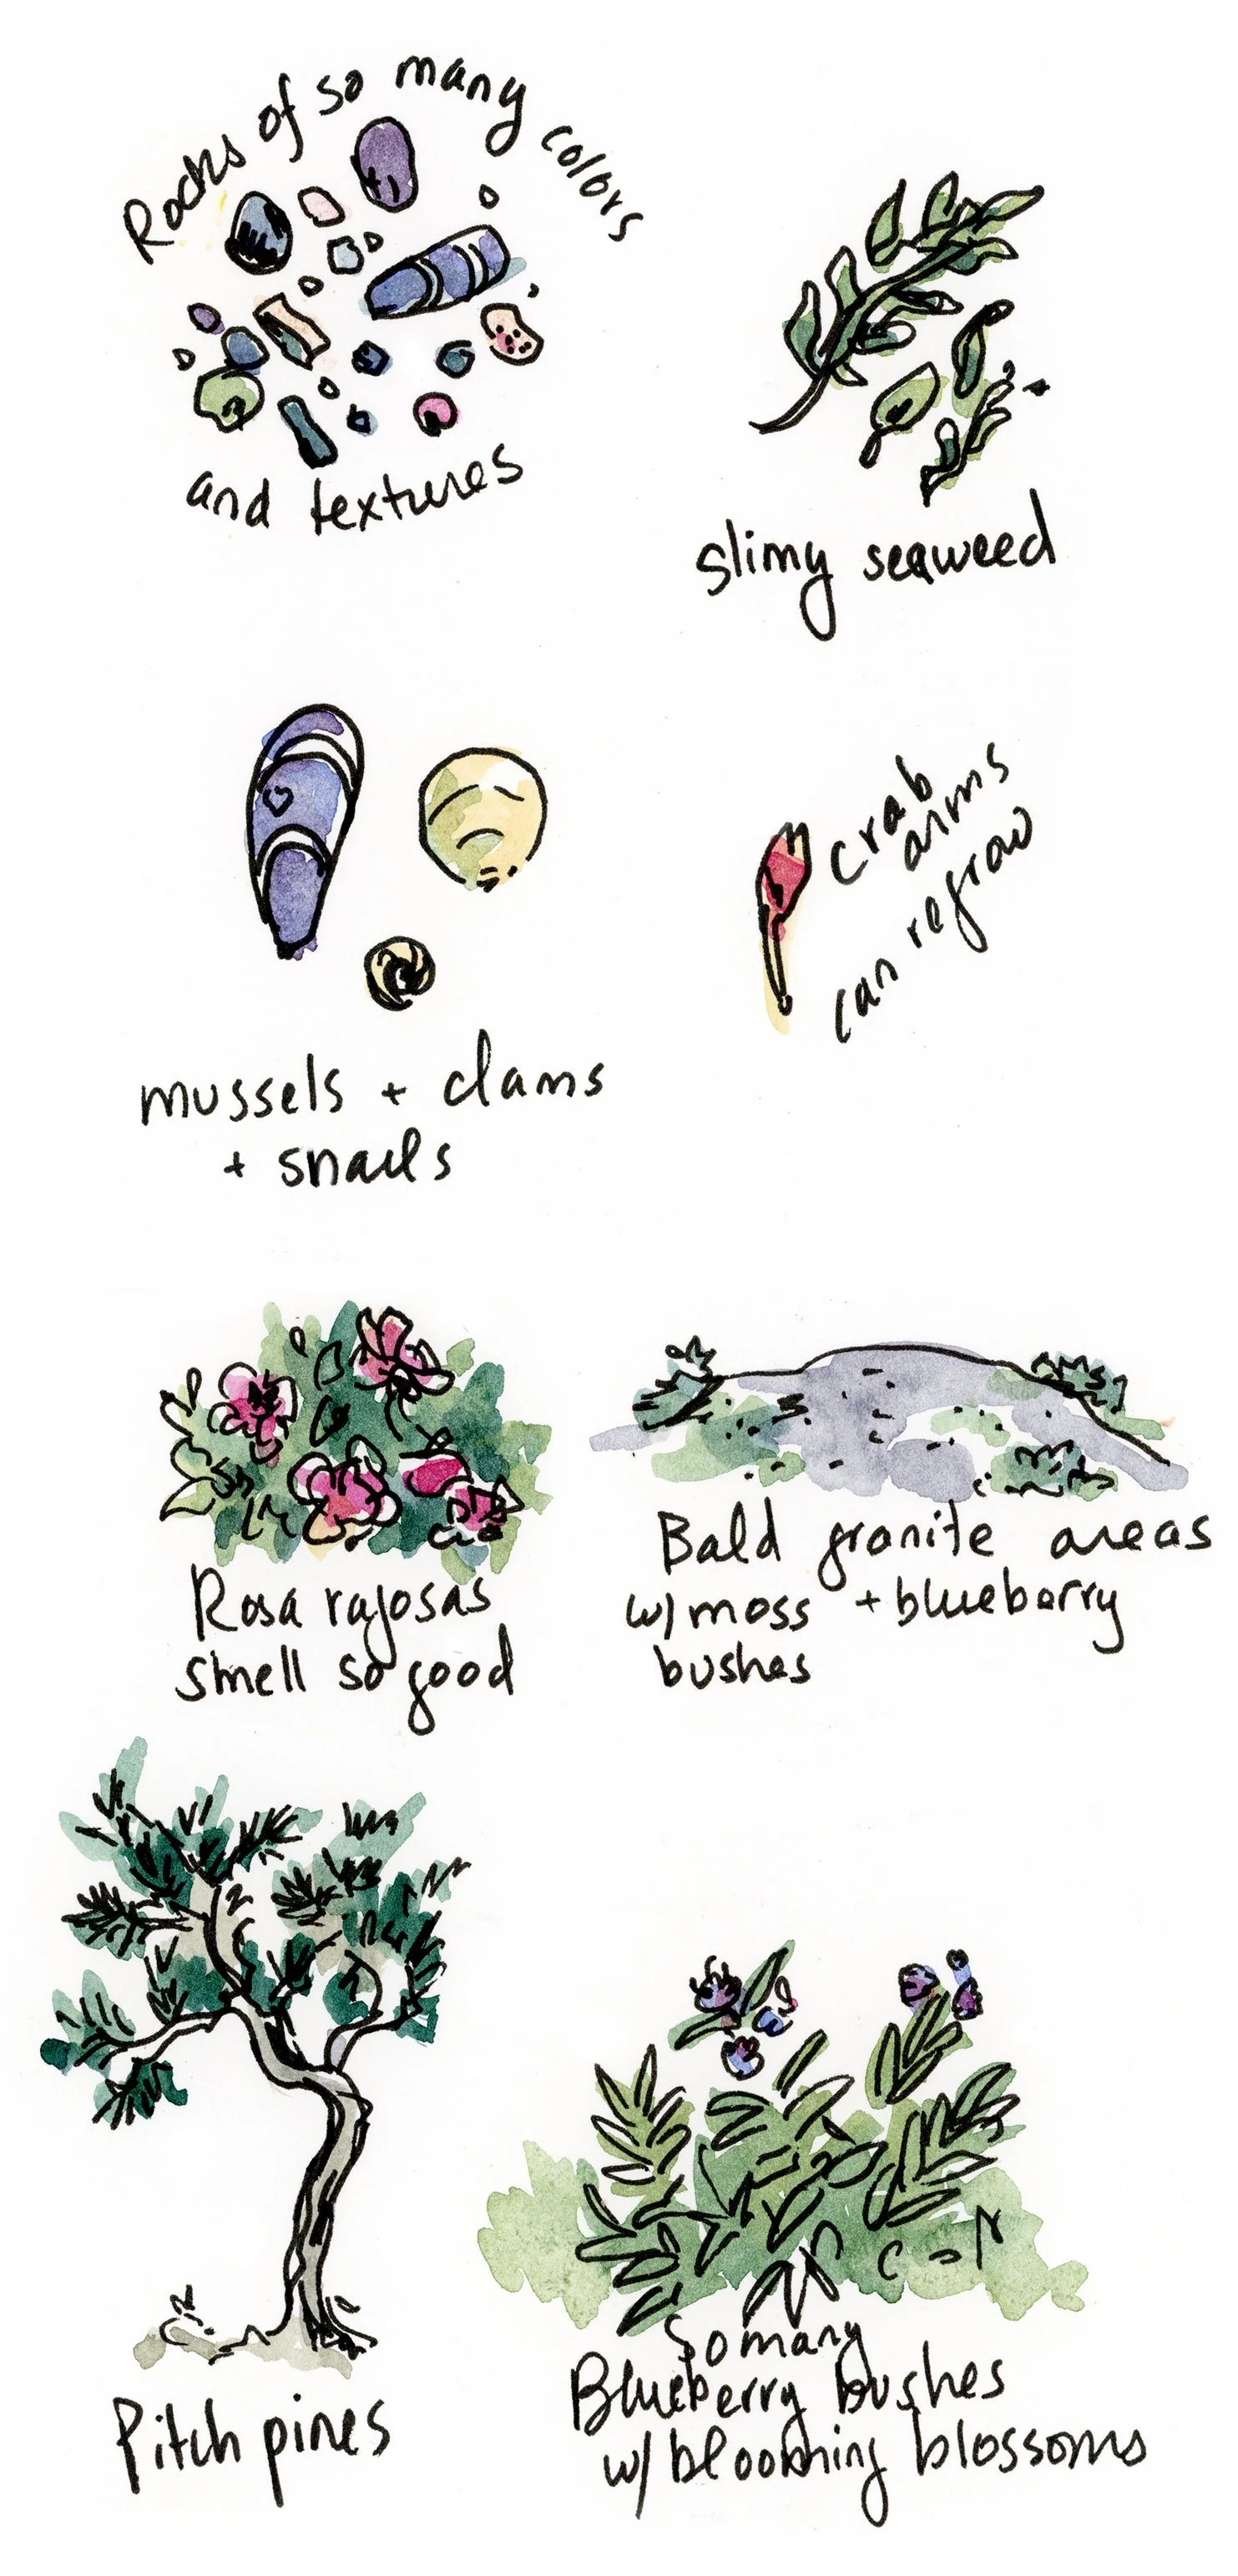 Rocks of so many colors
and textures
slimy seaweed
mussels + clams
+ snails
crab
arms
can regrow
Rosa rugosas
smell so good
Bald granite areas
w/ moss + blueberry
bushes
Pitch pines
So many
Blueberry bushes
w/ blooming blossoms